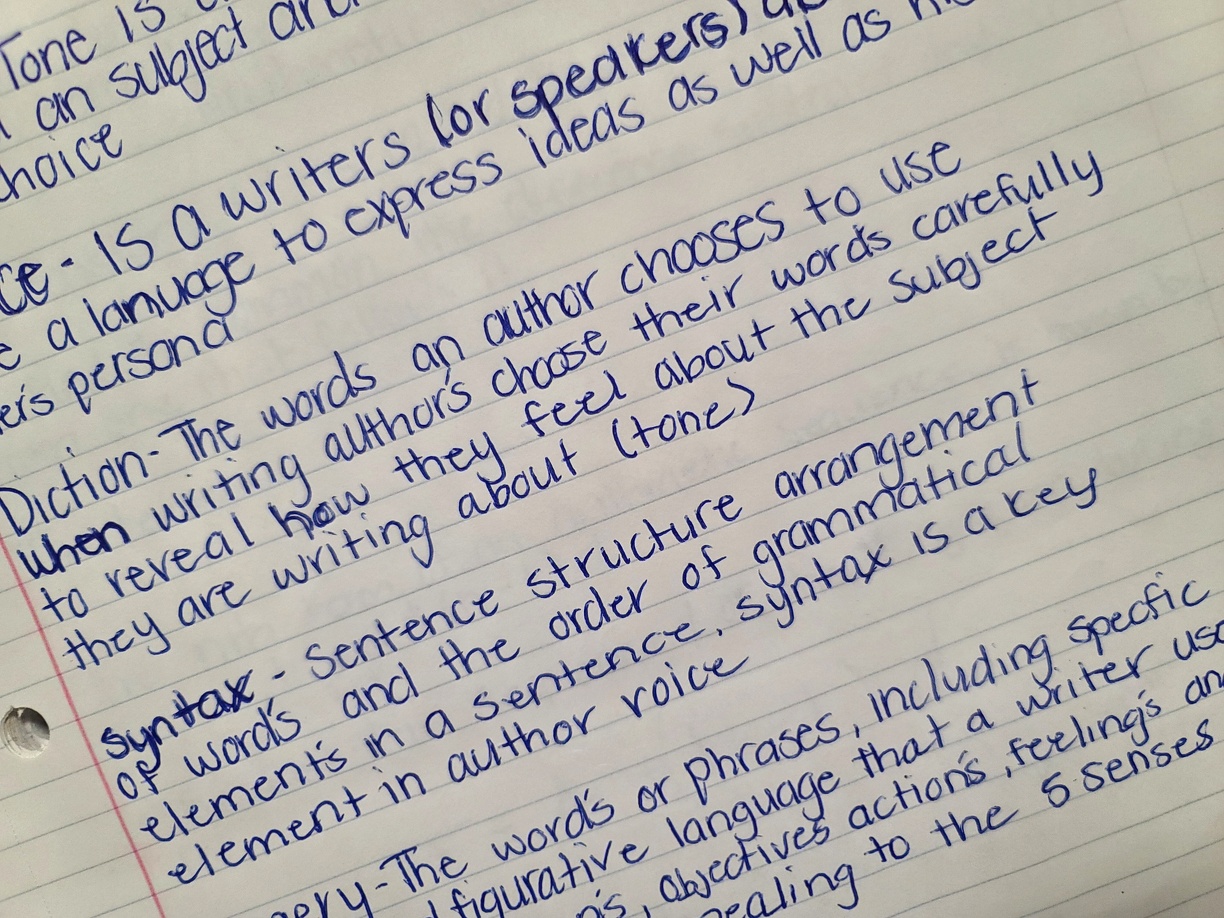 Tone is
an subject and
choice
- is a writers (or speakers)
a lanuage to express ideas as well as
persona
Diction- The words an author chooses to use
when writing author's choose their words carefully
to reveal how they feel about the subject
they are writing about (tone)
syntax - sentence structure arrangement
of word's and the order of grammatical
element's in a sentence, syntax is a key
element in author voice
-The word's or phrases, including specfic
figurative language that a writer
objectives action's, feeling's
to the 5 senses